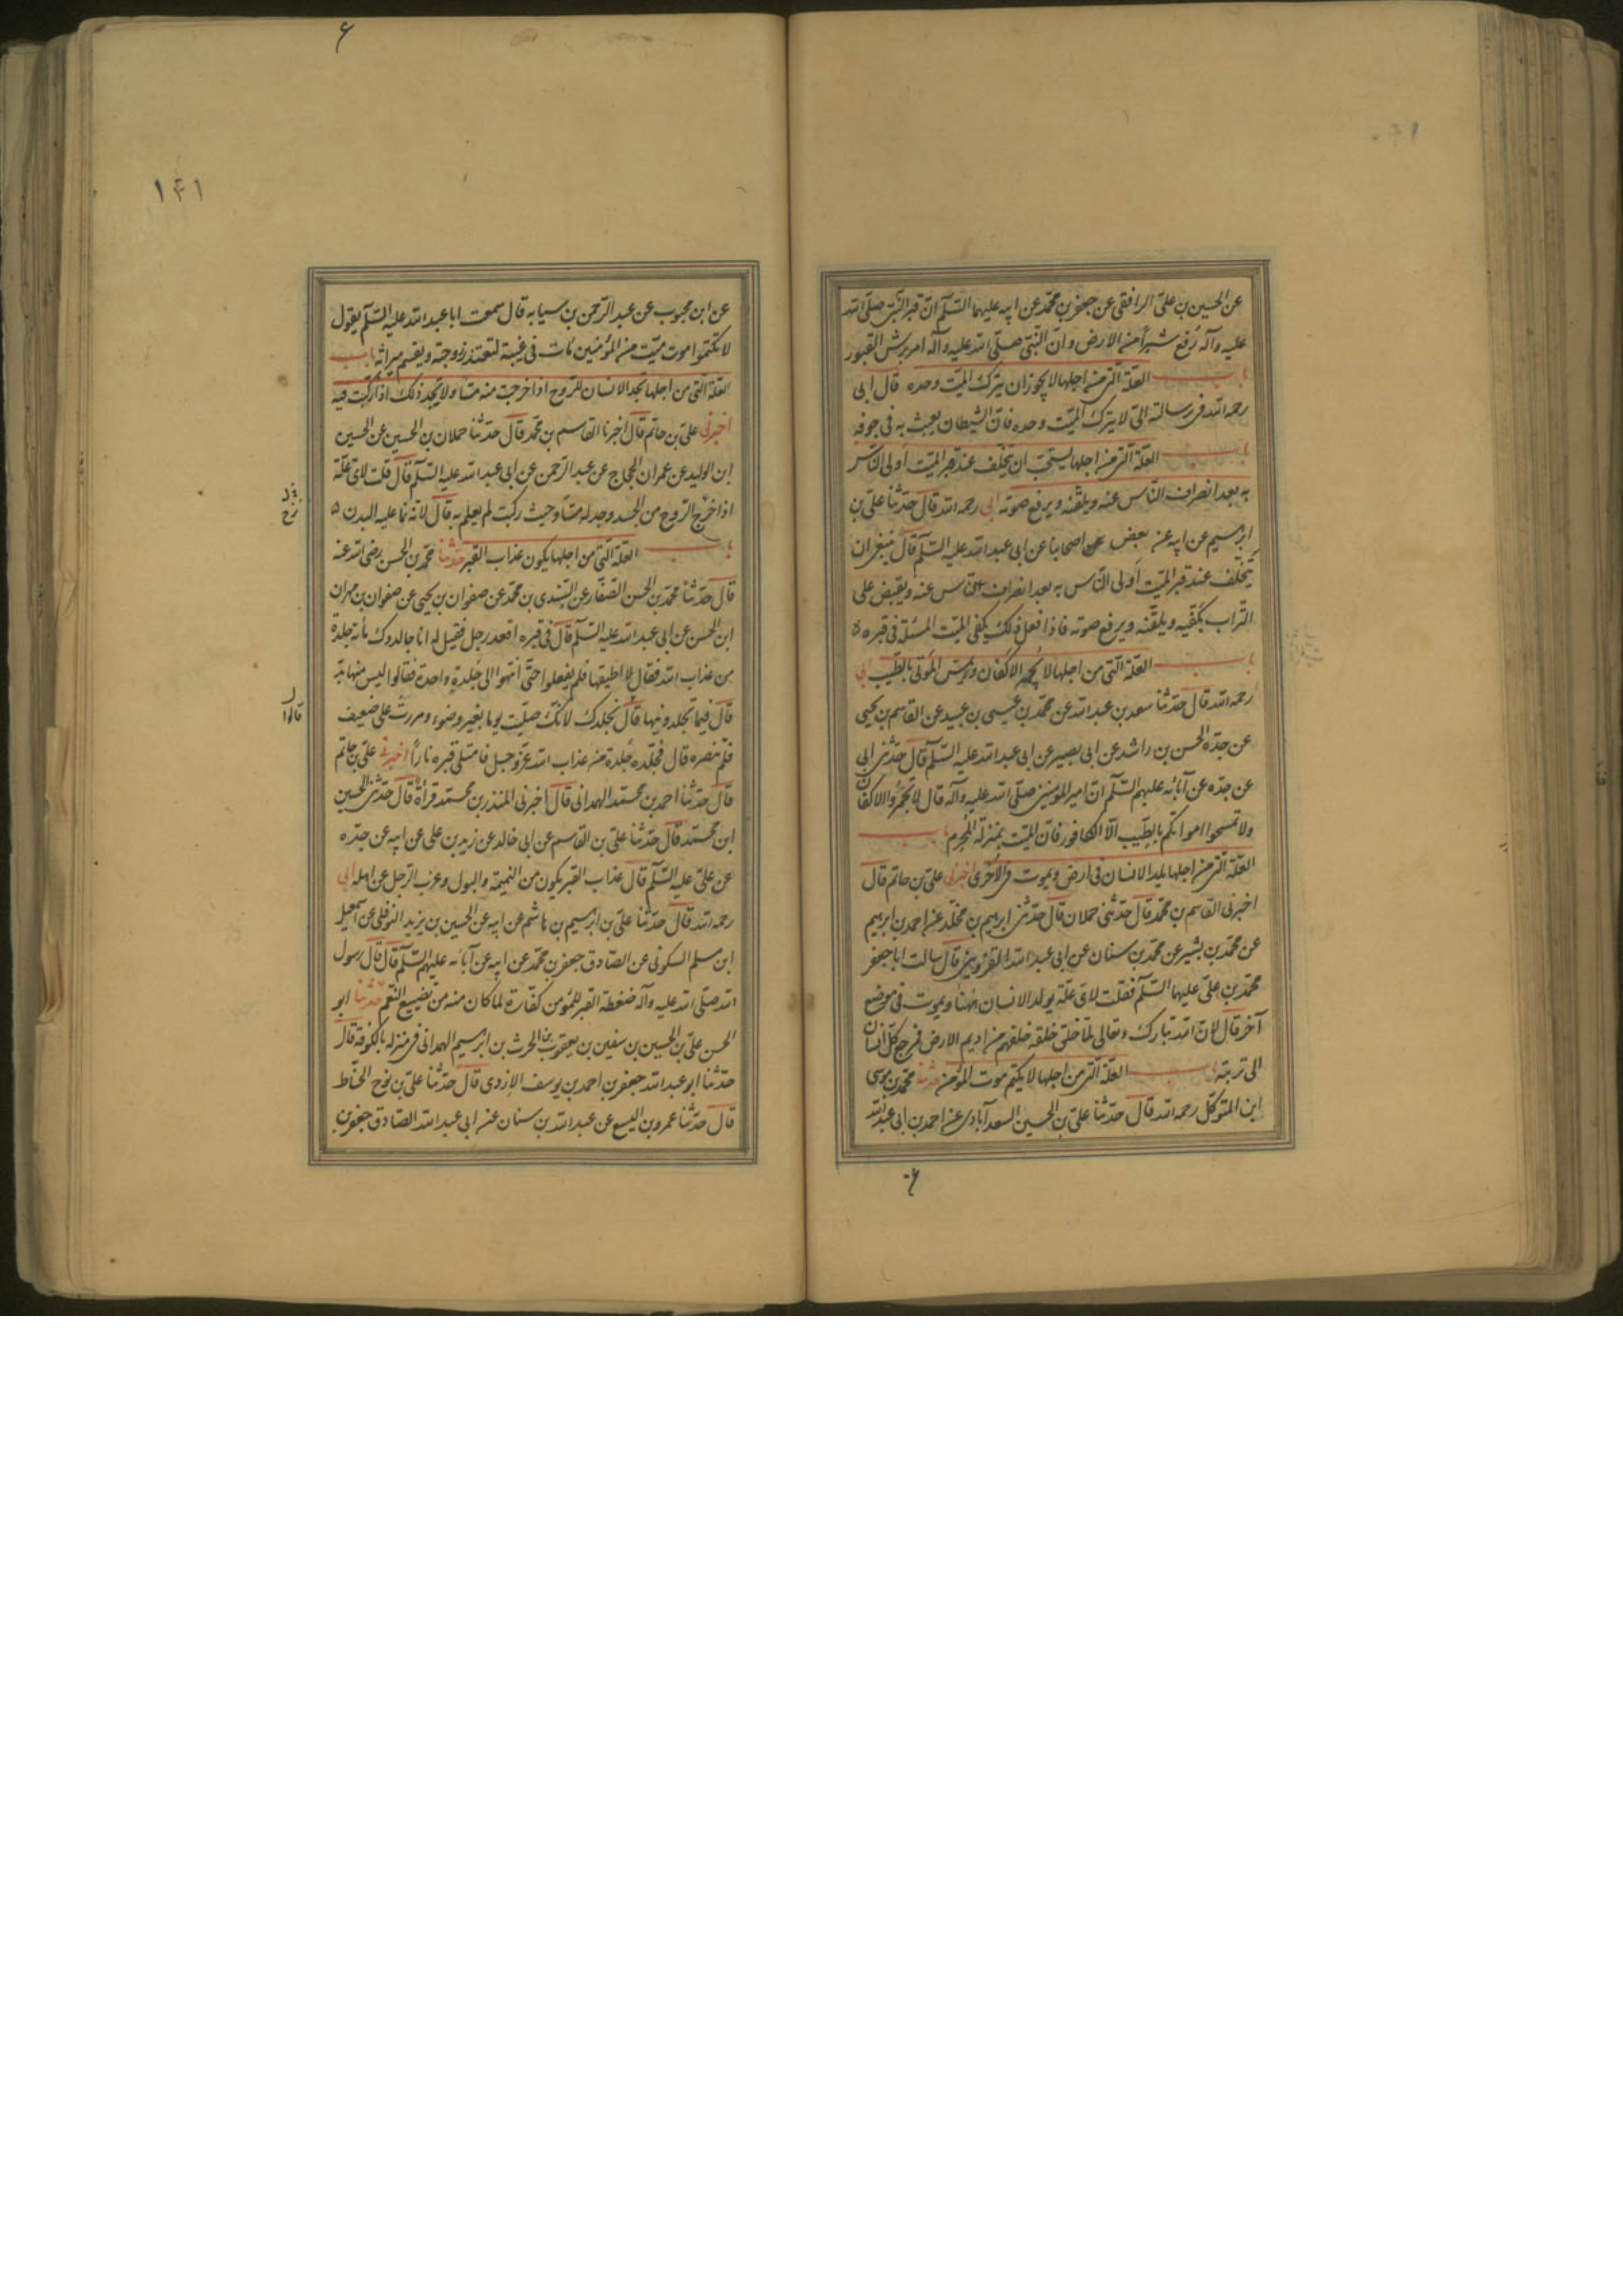 عن الحسين بن علي الرافقي عن جعفر بن محمد عن ابيه عليهما السلم ان قبر النبي صلى الله
عليه وآله رفع شبرا من الارض وان النبي صلى الله عليه وآله امر برش القبور
باب العلة التي من اجلها لا يجوز ان يترك الميت وحده قال ابي
رحمه الله في رسالته الي لا يترك الميت وحده فان الشيطان يعبث به في جوفه
باب العلة التي من اجلها يستحب ان يتخلف عند قبر الميت اولى الناس
به بعد انصراف الناس عنه ويلقنه ويرفع صوته ابي رحمه الله قال حدثنا علي بن
ابرهيم عن ابيه عن بعض اصحابنا عن ابي عبد الله عليه السلم قال ينبغي ان
يتخلف عند قبر الميت اولى الناس به بعد انصراف الناس عنه ويقبض على
التراب بكفيه ويلقنه ويرفع صوته فاذا فعل ذلك كفي الميت المسئلة في قبره
باب العلة التي من اجلها لا تجمر الاكفان ولا يمس الموتى بالطيب ابي
رحمه الله قال حدثنا سعد بن عبد الله عن محمد بن عيسى بن عبيد عن القاسم بن يحيى
عن جده الحسن بن راشد عن ابي بصير عن ابي عبد الله عليه السلم قال حدثني ابي
عن جده عن آبائه عليهم السلم ان امير المومنين صلى الله عليه وآله قال لا تجمروا الاكفان
ولا تمسحوا امواتكم بالطيب الا الكافور فان الميت بمنزلة المحرم باب
العلة التي من اجلها يلد الانسان في ارض ويموت في الاخرى اخبرني علي بن حاتم قال
اخبرني القاسم بن محمد قال حدثني حملان قال حدثني ابرهيم بن مخلد عن احمد بن ابرهيم
عن محمد بن بشير عن محمد بن سنان عن ابي عبد الله القزويني قال سالت ابا جعفر
محمد بن علي عليهما السلم فقلت لاي علة يولد الانسان ههنا ويموت في موضع
آخر قال لان الله تبارك وتعالى لما خلق خلقه خلقهم من اديم الارض فيرجع كل انسان
الى تربته باب العلة التي من اجلها لا يكتم موت المؤمن حدثنا محمد بن موسى
ابن المتوكل رحمه الله قال حدثنا علي بن الحسين السعدآبادي عن احمد بن ابي عبد الله
۱۴۱
عن ابن محبوب عن عبد الرحمن بن سيابه قال سمعت ابا عبد الله عليه السلم يقول
لا تكتموا موت ميت من المؤمنين مات في غيبة لتعتد زوجته ويقسم ميراثه باب
العلة التي من اجلها يجد الانسان للروح اذا خرجت منه مسا ولا يجد ذلك اذا ركبت فيه
اخبرني علي بن حاتم قال اخبرنا القاسم بن محمد قال حدثنا حملان بن الحسين عن الحسين
ابن الوليد عن عمران الحجاج عن عبد الرحمن عن ابي عبد الله عليه السلم قال قلت لاي علة
اذا خرج الروح من الجسد وجد له مسا وحيث ركبت لم يعلم به قال لانه نما عليه البدن
باب العلة التي من اجلها يكون عذاب القبر حدثنا محمد بن الحسن رضي الله عنه
قال حدثنا محمد بن الحسن الصفار عن السندي بن محمد عن صفوان بن يحيى عن صفوان بن مهران
ابن الحسن عن ابي عبد الله عليه السلم قال في قبره اقعد رجل فقيل له انا جالدوك مأئة جلدة
من عذاب الله فقال لا اطيقها فلم يفعلوا حتى انتهوا الى جلدة واحدة فقالوا ليس منها بد
قالوا
قال فيما تجلدونيها قال نجلدك لانك صليت يوما بغير وضوء ومررت على ضعيف
فلم تنصره قال فجلده جلدة من عذاب الله عز وجل فامتلى قبره نارا اخبرني علي بن حاتم
قال حدثنا احمد بن محمد الهمداني قال اخبرني المنذر بن محمد قرأة قال حدثني الحسين
ابن محمد قال حدثنا علي بن القاسم عن ابي خالد عن زيد بن علي عن ابيه عن جده
عن علي عليه السلم قال عذاب القبر يكون من النميمة والبول وعزب الرجل عن اهله ابي
رحمه الله قال حدثنا علي بن ابرهيم بن هاشم عن ابيه عن الحسين بن يزيد النوفلي عن اسمعيل
ابن مسلم السكوني عن الصادق جعفر بن محمد عن ابيه عن آبائه عليهم السلم قال قال رسول
الله صلى الله عليه وآله ضغطة القبر للمؤمن كفارة لما كان منه من تضييع النعم حدثنا ابو
الحسن علي بن الحسين بن سفين بن يعقوب بن الحرث بن ابرهيم الهمداني في منزله بالكوفة قال
حدثنا ابو عبد الله جعفر بن احمد بن يوسف الازدي قال حدثنا علي بن نوح الحناط
قال حدثنا عمرو بن اليسع عن عبد الله بن سنان عن ابي عبد الله الصادق جعفر بن